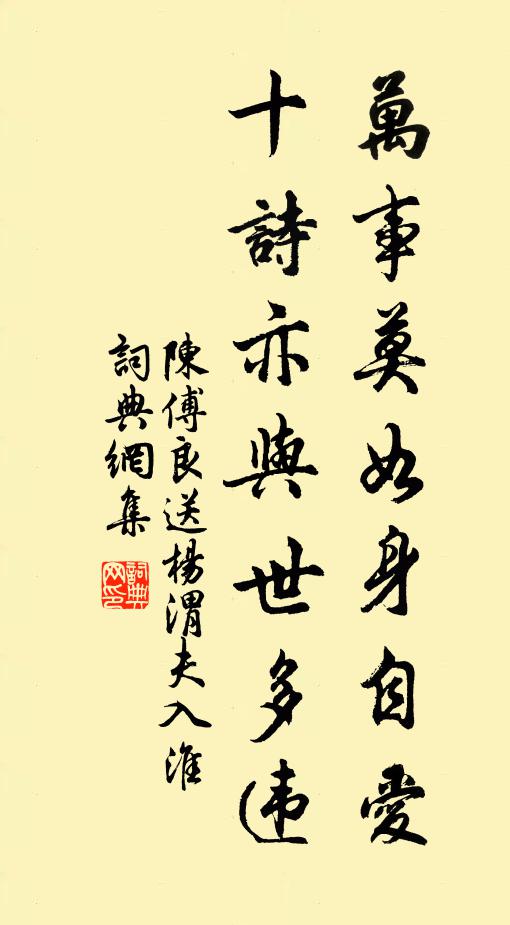 萬事莫如身自愛
十詩亦與世多违
陳傅良送楊渭夫入淮
詞典網集
詞典网印